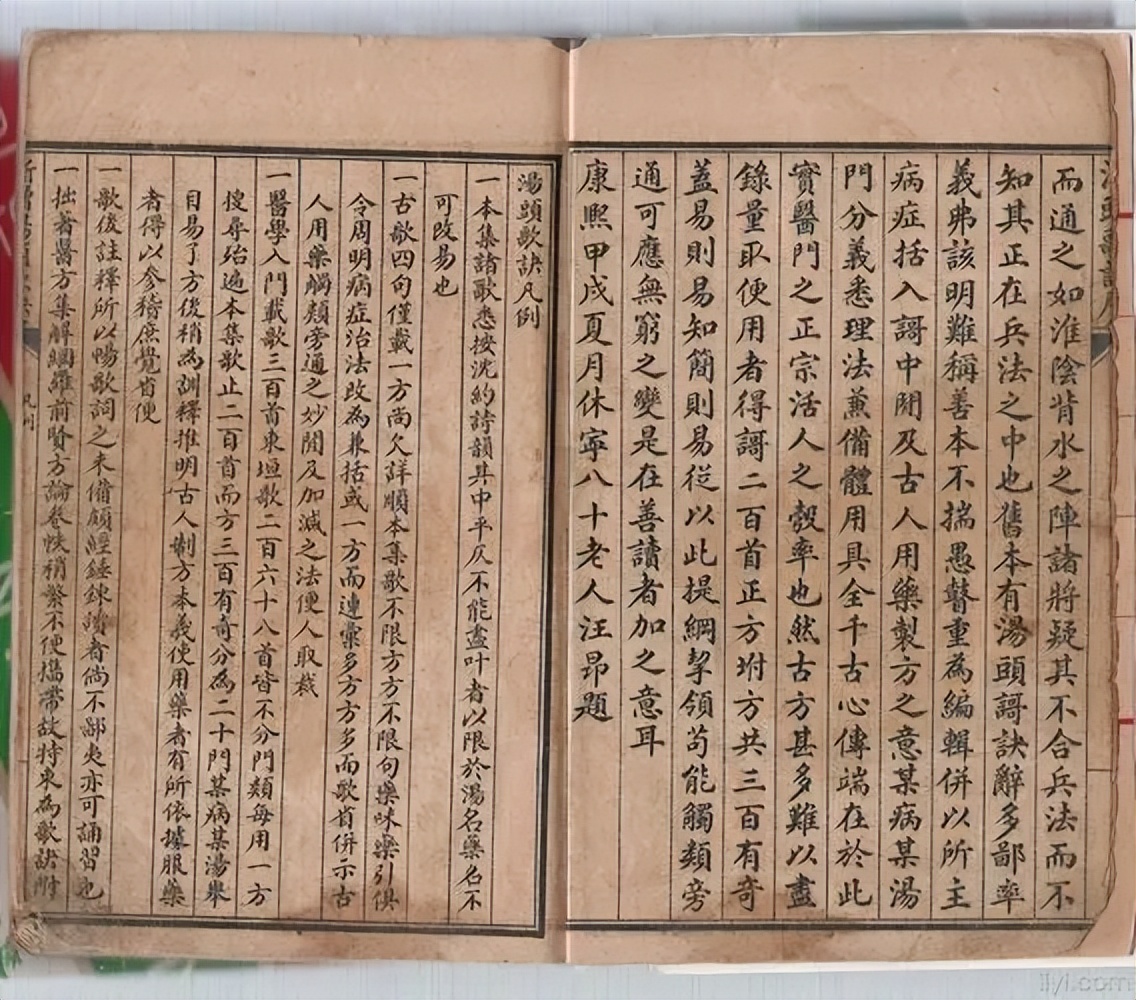 而通之如淮陰背水之陣諸將疑其不合兵法而不
知其正在兵法之中也舊本有湯頭謌訣辭多鄙率
義弗該明難稱善本不揣愚瞽重為編輯併以所主
病症括入謌中閒及古人用藥製方之意某病某湯
門分義悉理法兼備體用具全千古心傳端在於此
實醫門之正宗活人之彀率也然古方甚多難以盡
錄量取便用者得謌二百首正方坿方共三百有奇
蓋易則易知簡則易從以此提綱挈領苟能觸類旁
通可應無窮之變是在善讀者加之意耳
康熙甲戌夏月休寧八十老人汪昂題
湯頭歌訣凡例
一本集諸歌悉按沈約詩韻其中平仄不能盡叶者以限於湯名藥名不
可改易也
一古歌四句僅載一方尚欠詳順本集歌不限方方不限句藥味藥引俱
令周明病症治法改為兼括或一方而連彙多方方多而歌省併示古
人用藥觸類旁通之妙閒及加減之法便人取裁
一醫學入門載歌三百首東垣歌二百六十八首皆不分門類每用一方
搜尋殆遍本集歌止二百首而方三百有奇分為二十門某病某湯舉
目易了方後稍為訓釋推明古人制方本義使用藥者有所依據服藥
者得以參稽庶覺省便
一歌後註釋所以暢歌詞之未備頗經錘鍊讀者倘不鄙夷亦可誦習也
一拙著醫方集解網羅前賢方論卷帙稍繁不便攜帶故特束為歌訣附